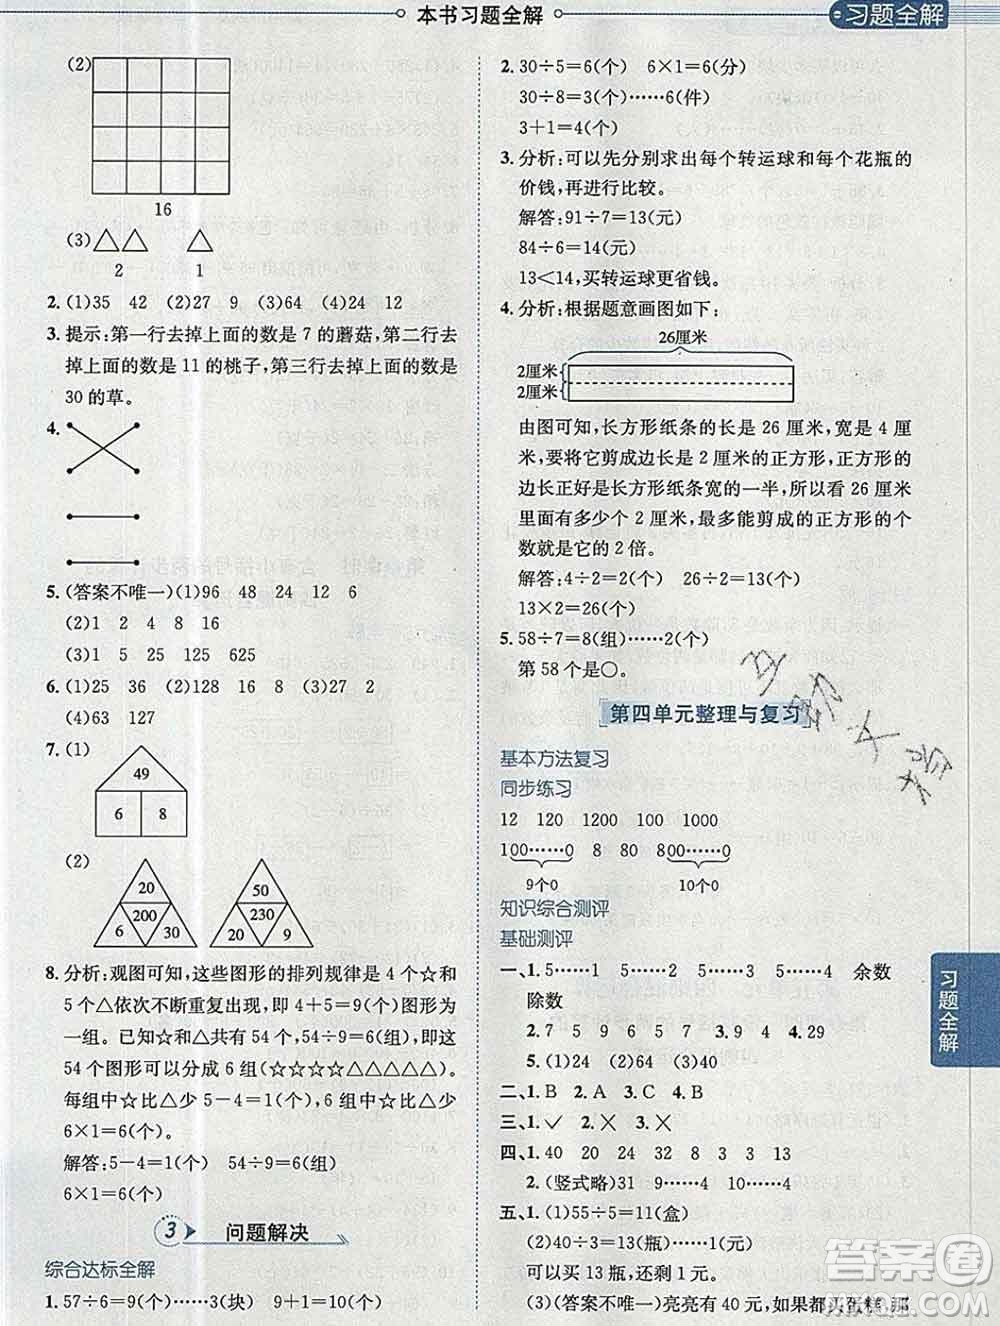 本书习题全解
习题全解
(2)
16
(3)
2 1
2. (1)35 42 (2)27 9 (3)64 (4)24 12
3. 提示:第一行去掉上面的数是 7 的蘑菇,第二行去
掉上面的数是 11 的桃子,第三行去掉上面的数是
30 的草。
4.
5. (答案不唯一)(1)96 48 24 12 6
(2)1 2 4 8 16
(3)1 5 25 125 625
6. (1)25 36 (2)128 16 8 (3)27 2
(4)63 127
7. (1)
49
6 8
(2)
20
200
6 30
50
230
20 9
8. 分析:观图可知,这些图形的排列规律是 4 个☆和
5 个△依次不断重复出现,即 4+5=9(个)图形为
一组。已知☆和△共有 54 个,54÷9=6(组),即这
54 个图形可以分成 6 组(☆☆☆☆△△△△△),
每组中☆比△少 5-4=1(个),6 组中☆比△少
6×1=6(个)。
解答:5-4=1(个) 54÷9=6(组)
6×1=6(个)
3 问题解决
综合达标全解
1. 57÷6=9(个)……3(块) 9+1=10(个)
2. 30÷5=6(个) 6×1=6(分)
30÷8=3(个)……6(件)
3+1=4(个)
3. 分析:可以先分别求出每个转运球和每个花瓶的
价钱,再进行比较。
解答:91÷7=13(元)
84÷6=14(元)
13<14,买转运球更省钱。
4. 分析:根据题意画图如下:
26厘米
2厘米
2厘米
由图可知,长方形纸条的长是 26 厘米,宽是 4 厘
米,要将它剪成边长是 2 厘米的正方形,正方形的
边长正好是长方形纸条宽的一半,所以看 26 厘米
里面有多少个 2 厘米,最多能剪成的正方形的个
数就是它的 2 倍。
解答:26÷2=13(个) 4÷2=2(个)
13×2=26(个)
5. 58÷7=8(组)……2(个)
第 58 个是○。
第四单元整理与复习
基本方法复习
同步练习
12 120 1200 100 1000
100……0 8 80 800……0
9个0 10个0
知识综合测评
基础测评
一、1. 5……1 5……2 5……4 余数
除数
2. 7 9 6 5 7 3. 9 4 4. 29
5. (1)24 (2)64 (3)40
二、1. B 2. A 3. C 4. B
三、1. ✓ 2. ✕ 3. ✕
四、1. 40 20 24 32 3 8 3 13
2. (竖式略) 31 9……4 10……4
五、1. (1)55÷5=11(盒)
(2)40÷3=13(瓶)……1(元)
可以买 13 瓶,还剩 1 元。
(3)(答案不唯一)亮亮有 40 元,如果都买蛋糕,那
习题全解
答案圈